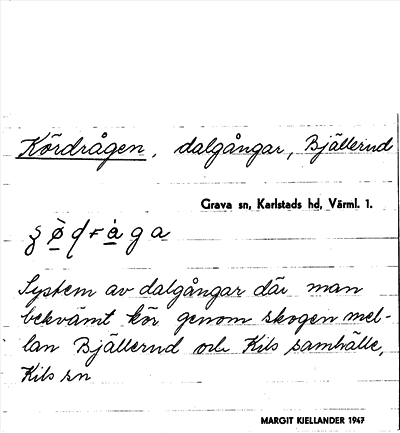 Kördrågen, dalgångar, Bjällerud
Grava sn, Karlstads hd, Värml. 1.
System av dalgångar där man
bekvämt kör genom skogen mel-
lan Bjällerud och Kils samhälle,
Kils sn
MARGIT KIELLANDER 1947